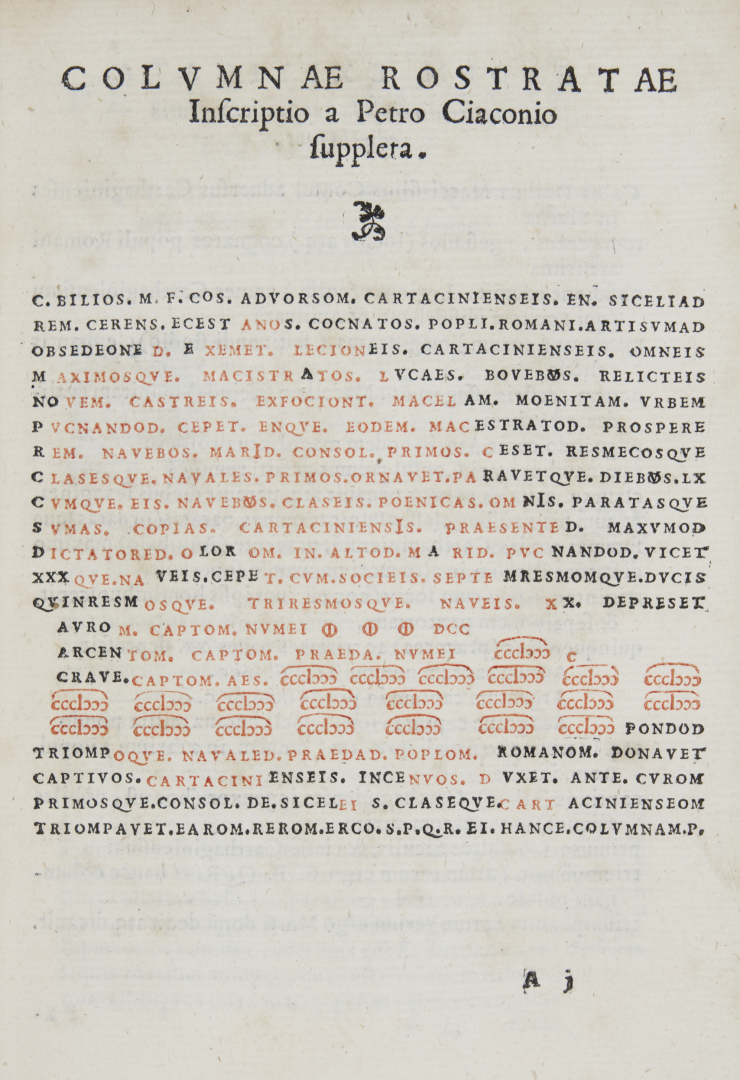 COLVMNAE ROSTRATAE
Inſcriptio a Petro Ciaconio
ſuppleta.
C. BILIOS. M. F. COS. ADVORSOM. CARTACINIENSEIS. EN. SICELIAD
REM. CERENS. ECEST ANOS. COCNATOS. POPLI. ROMANI. ARTISVMAD
OBSEDEONE D. E XEMET. LECIONEIS. CARTACINIENSEIS. OMNEIS
M AXIMOSQVE. MACISTRATOS. LVCAES. BOVEBOS. RELICTEIS
NOVEM. CASTREIS. EXFOCIONT. MACEL AM. MOENITAM. VRBEM
P VCNANDOD. CEPET. ENQVE. EODEM. MACESTRATOD. PROSPERE
R EM. NAVEBOS. MARID. CONSOL. PRIMOS. CESET. RESMECOSQVE
C LASESQVE. NAVALES. PRIMOS. ORNAVET. PARAVETQVE. DIEBOS. LX
C VMQVE. EIS. NAVEBOS. CLASEIS. POENICAS. OMNIS. PARATASQVE
S VMAS. COPIAS. CARTACINIENSIS. PRAESENTED. MAXVMOD
DICTATORED. OLOR OM. IN. ALTOD. MARID. PVCNANDOD. VICET
XXXQVE. NAVEIS. CEPET. CVM. SOCIEIS. SEPTEMRESMOMQVE. DVCIS
QVINRESMOSQVE. TRIRESMOSQVE. NAVEIS. XX. DEPRESET
AVROM. CAPTOM. NVMEI ↀ ↀ ↀ DCC
ARCENTOM. CAPTOM. PRAEDA. NVMEI cccIↄↄↄ c
CRAVE. CAPTOM. AES. cccIↄↄↄ cccIↄↄↄ cccIↄↄↄ cccIↄↄↄ cccIↄↄↄ cccIↄↄↄ
cccIↄↄↄ cccIↄↄↄ cccIↄↄↄ cccIↄↄↄ cccIↄↄↄ cccIↄↄↄ cccIↄↄↄ cccIↄↄↄ
cccIↄↄↄ cccIↄↄↄ cccIↄↄↄ cccIↄↄↄ cccIↄↄↄ cccIↄↄↄ cccIↄↄↄ PONDOD
TRIOMPOQVE. NAVALED. PRAEDAD. POPLOM. ROMANOM. DONAVET
CAPTIVOS. CARTACINIENSEIS. INCENVOS. D VXET. ANTE. CVROM
PRIMOSQVE. CONSOL. DE. SICELEI S. CLASEQVE. CART ACINIENSEOM
TRIOMPAVET. EAROM. REROM. ERCO. S. P. Q. R. EI. HANCE. COLVMNAM. P.
A j